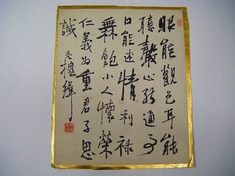 眼能觀色耳能
聽聲心能通
口能述情利祿
飽小人懷榮
仁義為重君子思
誠